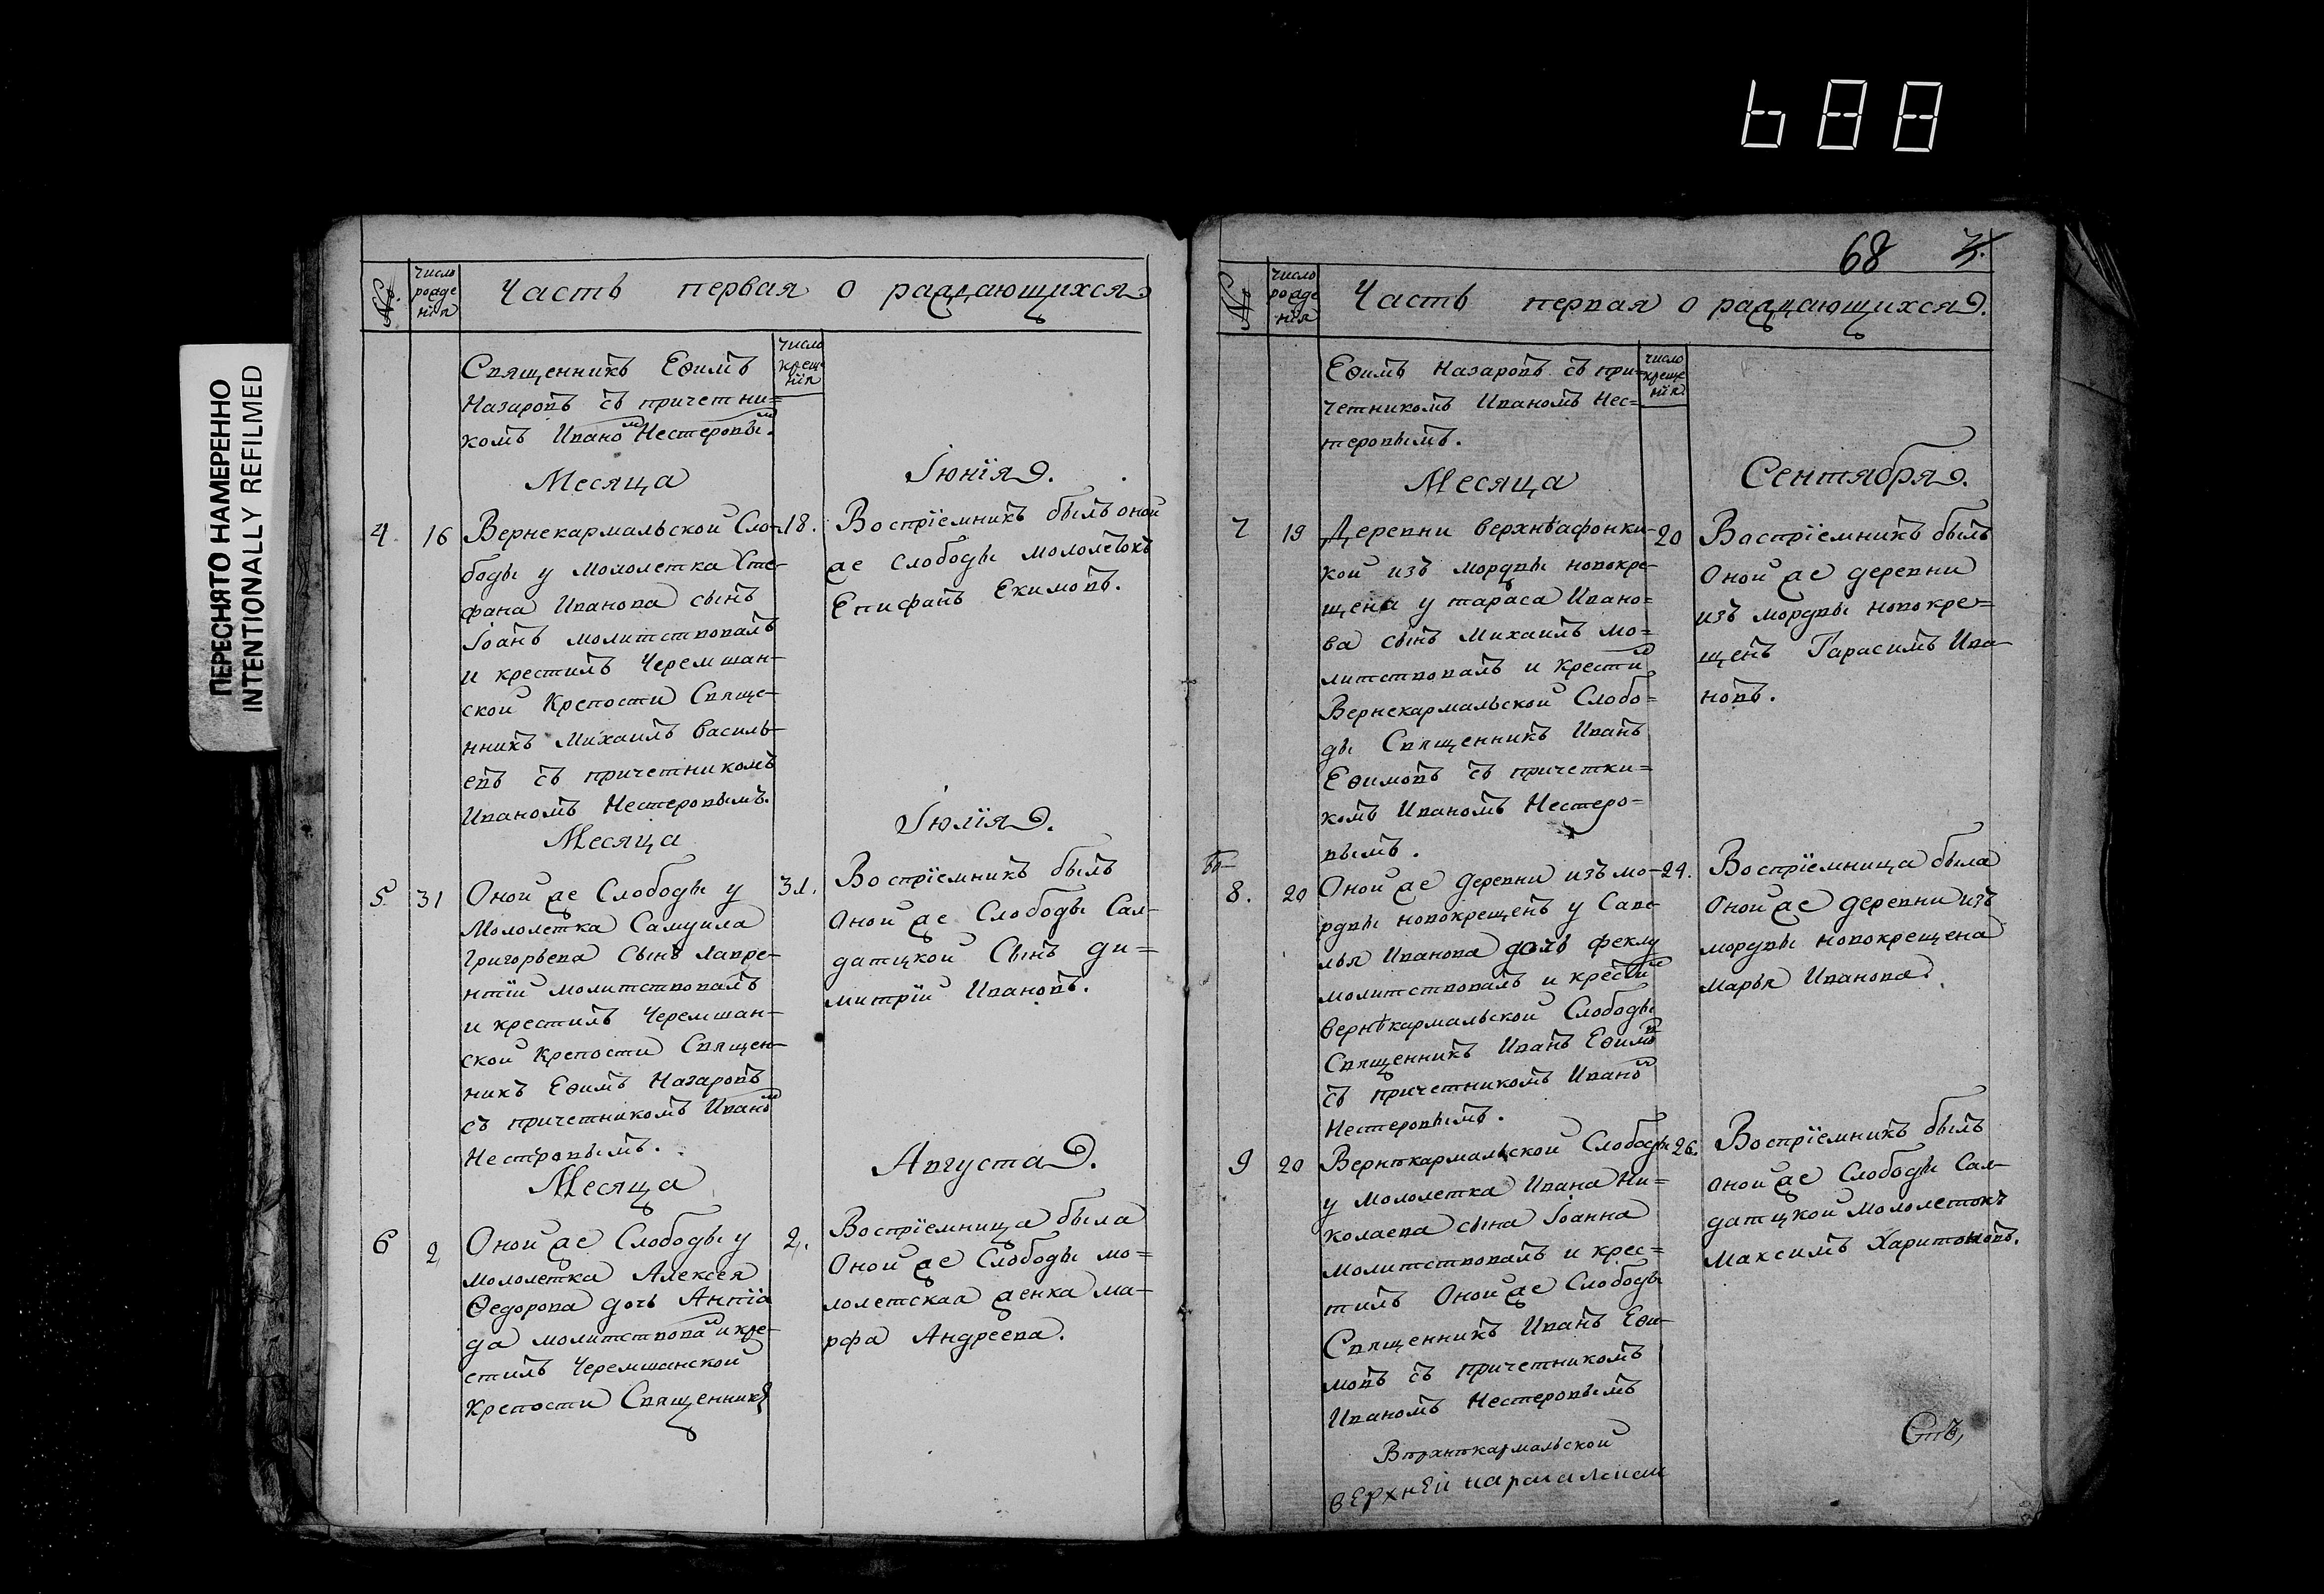 688
ПЕРЕСНЯТО НАМЕРЕННО
INTENTIONALLY REFILMED
№.
число рожде нїя
Часть первая о раждающихся
число креще нїя
Священникъ Еѳимъ
Назаровъ съ причетни=
комъ Иваном Нестеровым.
Месяца Іюнїя.
4. 16 Вернекармальской Сло- 18.
боды у мололетка Сте-
фана Иванова сынъ
Іоанъ молитствовалъ
и крестилъ Черемшан-
ской Крепости Свяще-
нникъ Михаилъ Василь-
евъ съ причетникомъ
Иваномъ Нестеровымъ.
Воспрїемникъ былъ оной
же слободы мололѣтокъ
Епифанъ Екимовъ.
Месяца Іюлїя.
5 31 Оной же Слободы у 31.
Мололетка Самуила
Григорьева Сынъ Лавре-
нтїй молитствовалъ
и крестилъ Черемшан-
ской Крепости Священ-
никъ Еѳимъ Назаровъ
съ причетникомъ Иваном
Нестровымъ.
Воспрїемникъ былъ
Оной же Слободы Сал-
датцкой Сынъ ди=
митрїй Ивановъ.
Месяца Августа.
6 2 Оной же Слободы у 2.
мололетка Алексея
Ѳедорова дочь Антїа
да молитствовал и кре-
стилъ Черемшанской
Крепости Священникъ
Воспрїемница была
Оной же Слободы мо=
лолетская женка ма-
рфа Андреева.
68 3.
№
число рожде нїя
Часть первая о раждающихся.
число креще нїя
Еѳимъ Назаровъ съ при=
четникомъ Иваномъ Нес=
теровымъ.
Месяца Сентября.
7 19 Деревни верхнѣафонки- 20
ной изъ мордвы новокре-
щена у тараса Ивано=
ва сынъ Михаилъ мо=
литствовалъ и крестил
Вернекармальской Слобо=
ды Священникъ Иванъ
Еѳимовъ съ причетни=
комъ Иваномъ Нестеро=
вымъ.
Воспрїемникъ былъ
Оной же деревни
изъ мордвы новокре=
щенъ Гарасимъ Ива-
новъ.
8. 20 Оной же деревни изъ мо- 24.
рдвы новокрещенъ у Саве
лья Иванова дочь феклу
молитствовалъ и крестил
вернѣкармальской Слободы
Священникъ Иванъ Еѳимов
съ причетникомъ Иваном
Нестеровымъ.
Воспрїемница была
Оной же деревни изъ
мордвы новокрещена
марья Иванова.
9 20 Вернѣкармальской Слободы 26.
у Мололетка Ивана Ни=
колаева сына Іоанна
Молитствовалъ и крес=
тилъ Оной же Слободы
Священникъ Иванъ Еѳи-
мовъ съ причетникомъ
Иваномъ Нестеровымъ
Воспрїемникъ былъ
Оной же Слободы Сал-
датцкой мололетокъ
Максимъ Харитоновъ.
верхней